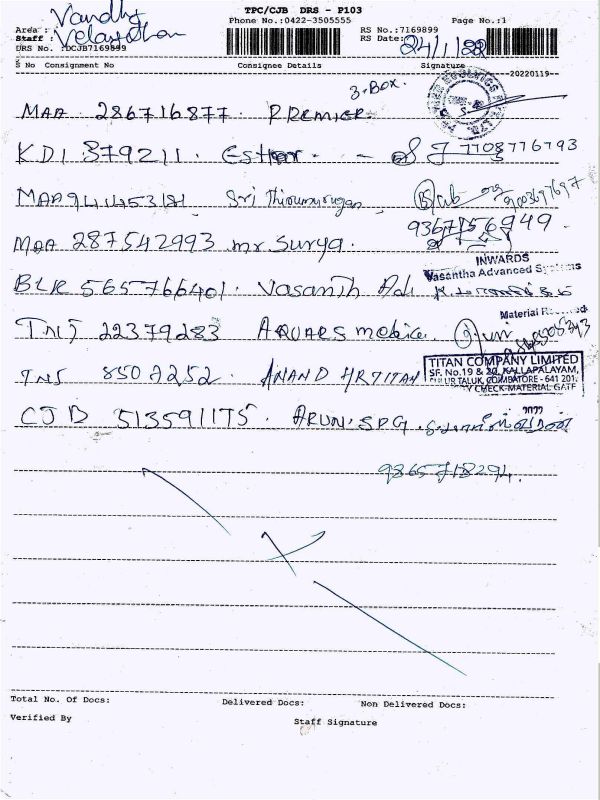 TPC/CJB DRS - P103
Vandhy
Area :
Phone No.:0422-3505555
Page No.:1
Staff : Velayudhan
RS No.:7169899
DRS No. :DCJB7169899
RS Date: 24/1/22
S No Consignment No Consignee Details Signature
--20220119--
3-Box.
MAA 286716877. PREMIER
KDI 379211. Esther. - 7708776793
Sri Thirumurugan
MAA 287542993 mr Surya.
9367156949.
INWARDS
Vasantha Advanced Systems
BLR 565766401. Vasanth Adi
Material Received
TNJ 22379283 AQUAES mobile
TITAN COMPANY LIMITED
SF. No.19 & 20, KALLAPALAYAM,
SULUR TALUK, COIMBATORE - 641 201.
TNJ 85072252. ANAND HR TITAN
CJB 513591175. ARUN. SPG.
9865718294.
Total No. Of Docs: Delivered Docs: Non Delivered Docs:
Verified By Staff Signature